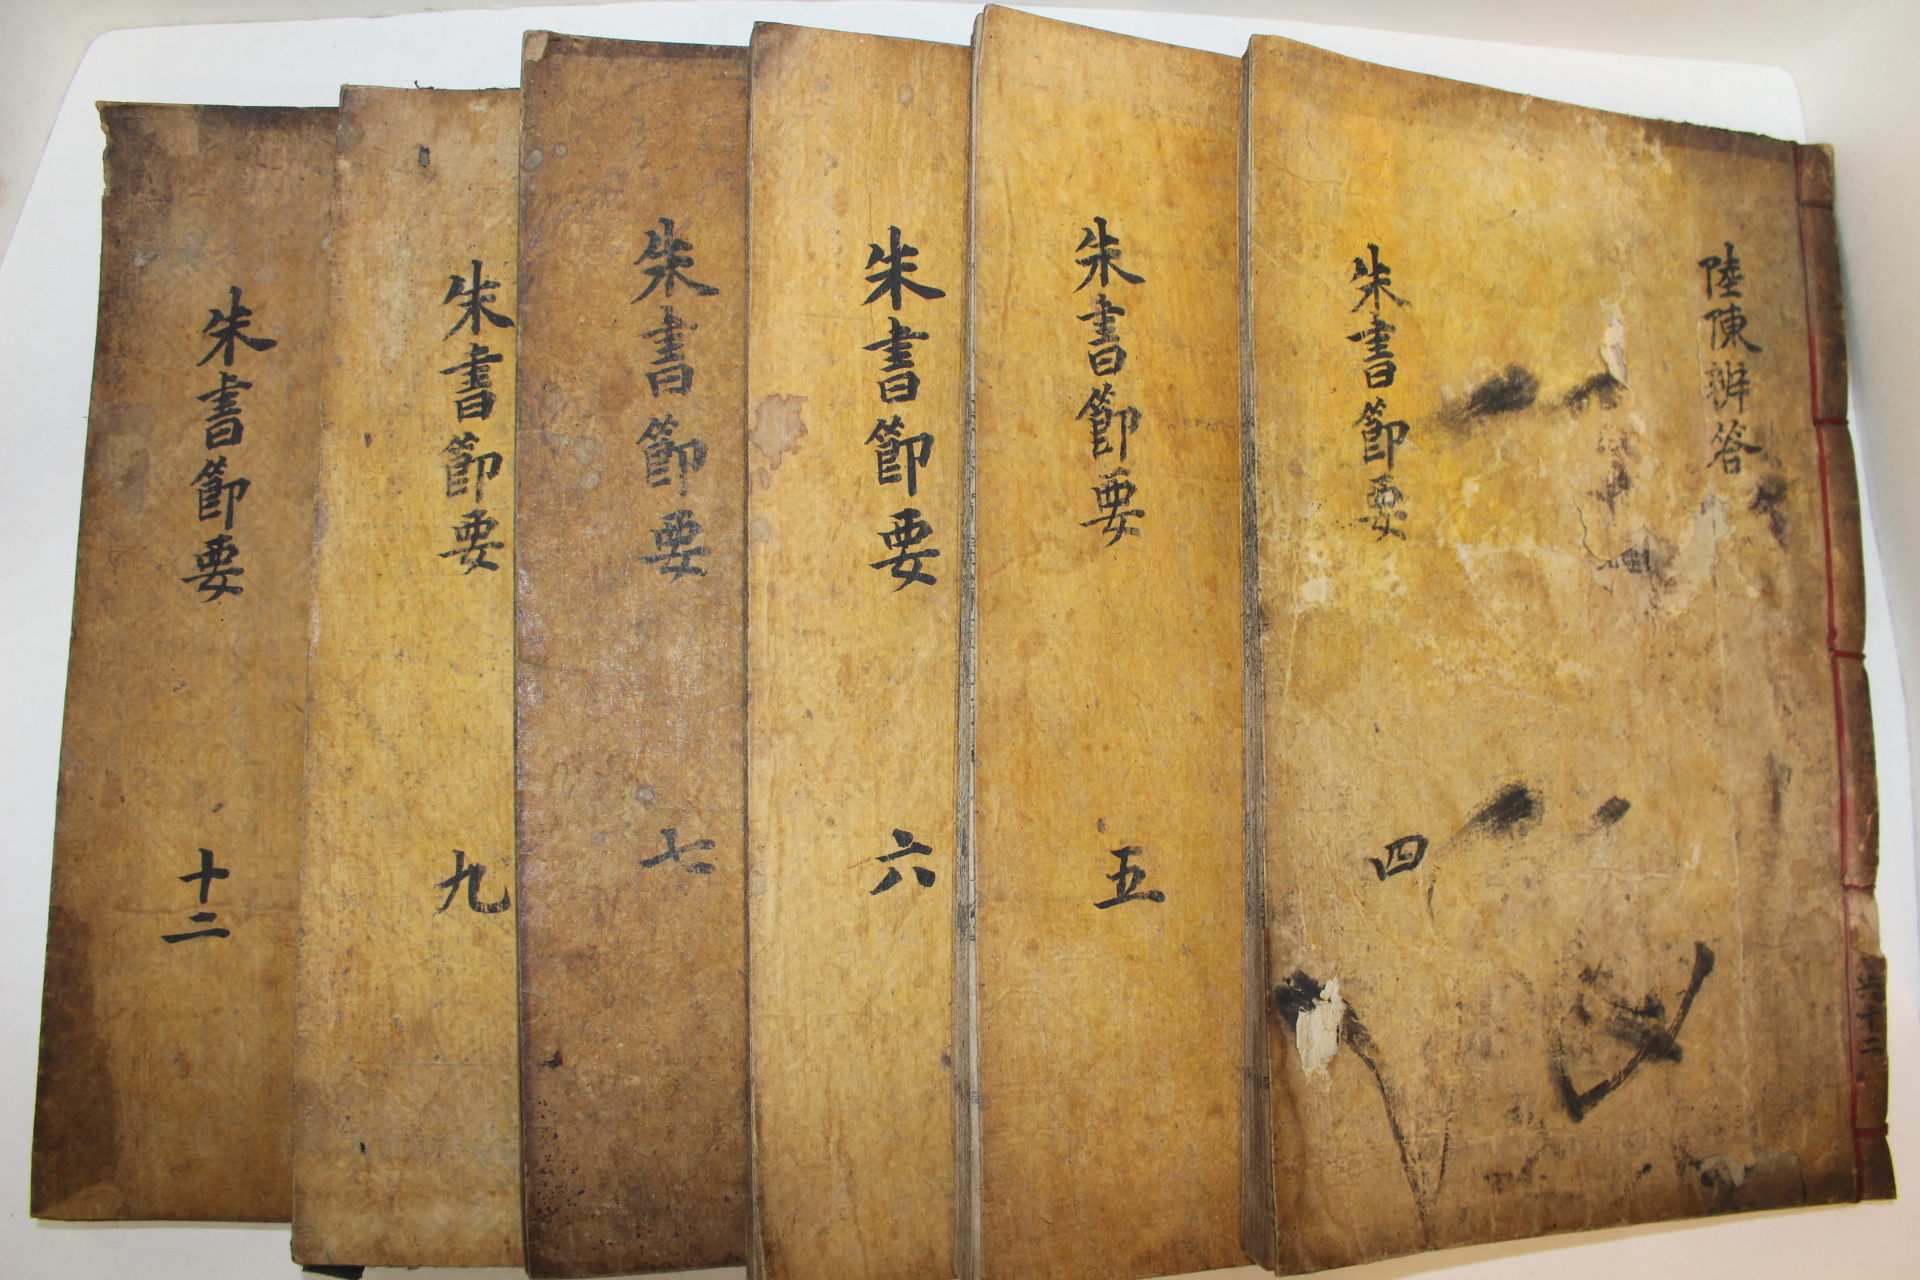 陸陳辨答
朱書節要
四
朱書節要
五
朱書節要
六
朱書節要
七
朱書節要
九
朱書節要
十二